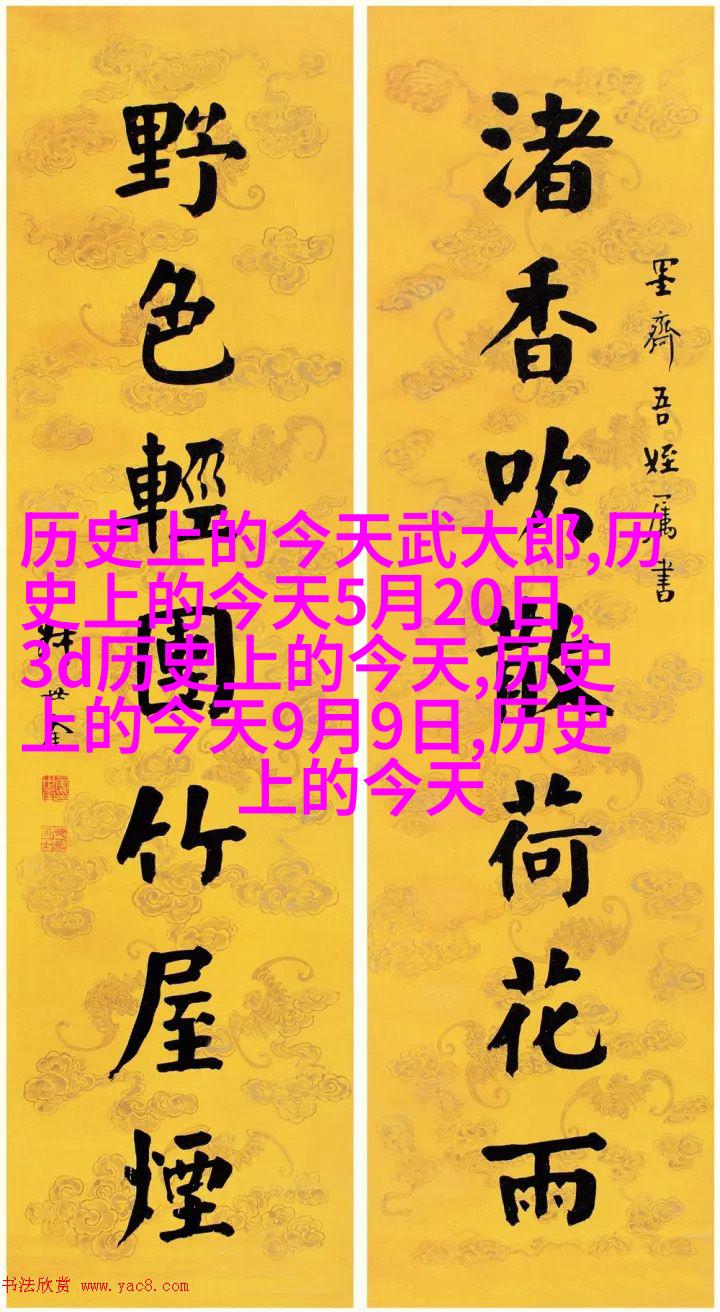 渚香吹散荷花雨
墨齋吾姪属書
野色輕竹屋煙
历史上的今天武大郎,历
史上的今天5月20日,
3d历史上的今天,历史
上的今天9月9日,历史
上的今天
书法欣赏 www.yac8.com